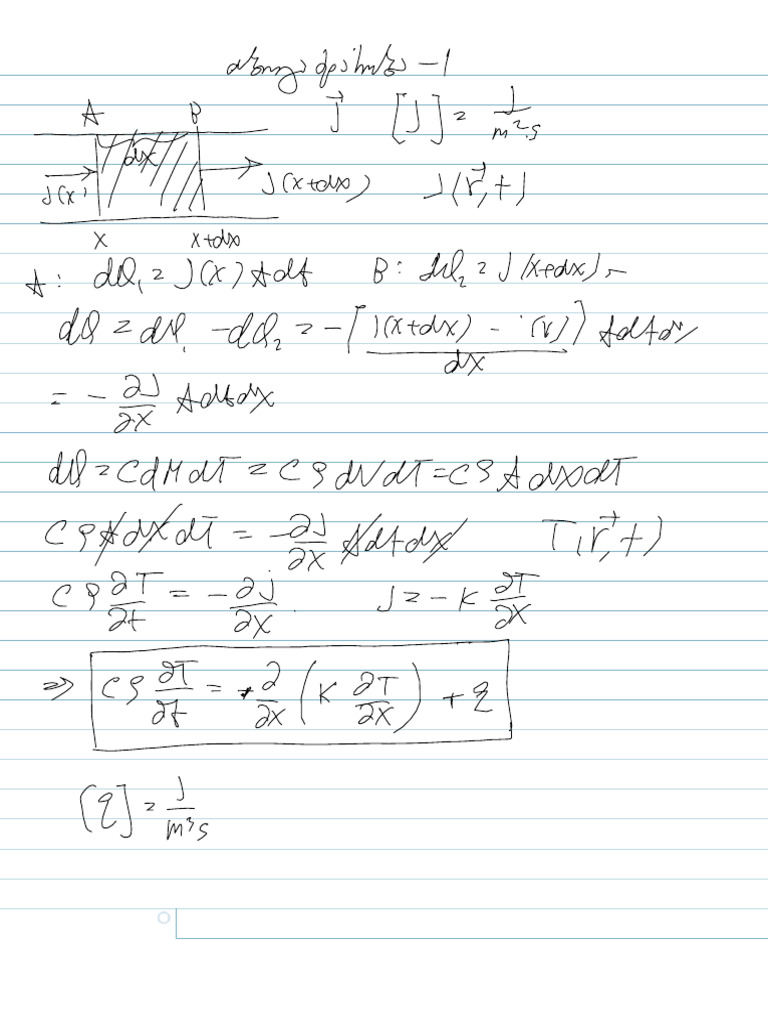 -1
A B j⃗ [J] = J/m²·s
dx
J(x) J(x+dx) J(r⃗,t)
x x+dx
A: dQ₁ = J(x) A dt B: dQ₂ = J(x+dx) ~
dQ = dQ₁ - dQ₂ = -[J(x+dx) - J(x)]/dx A dt dx
= - ∂J/∂x A dt dx
dQ = C dM dT = C ρ dV dT = C ρ A dx dT
C ρ A dx dT = - ∂J/∂x A dt dx T(r⃗,t)
C ρ ∂T/∂t = - ∂j/∂x . J = - K ∂T/∂x
⇒ C ρ ∂T/∂t = + ∂/∂x (K ∂T/∂x) + q
[q] = J/m³s